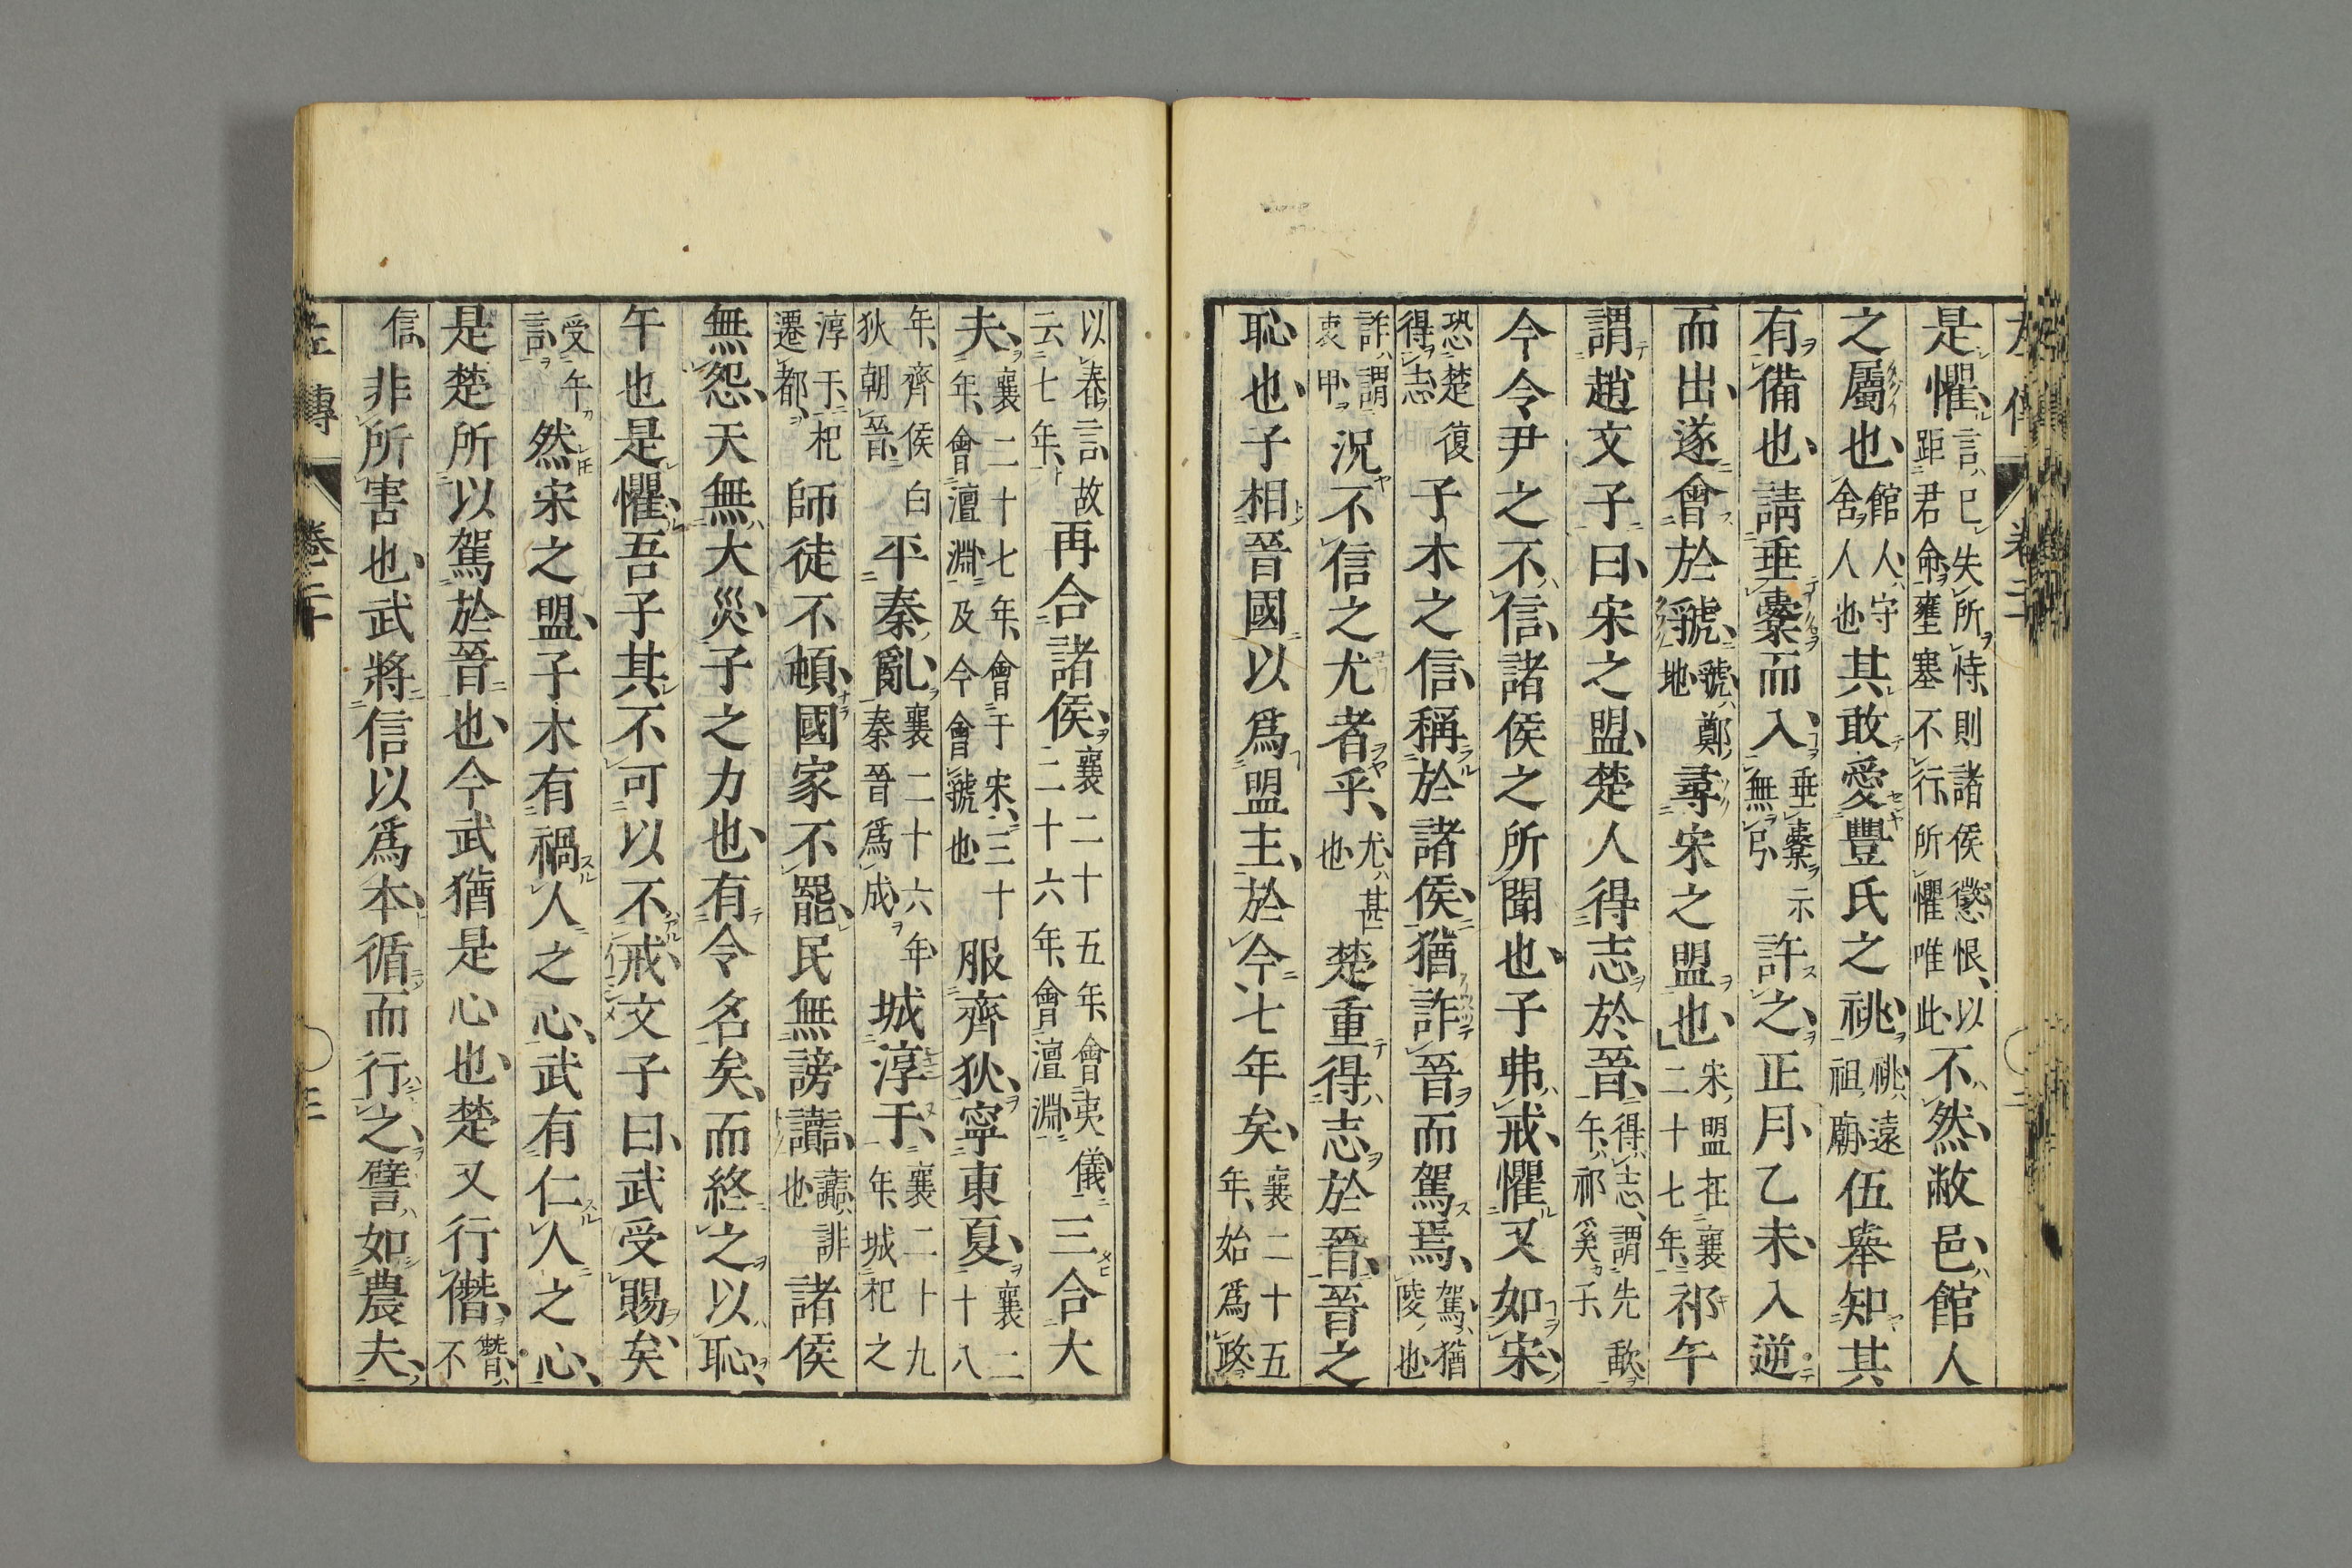 左傳 卷二十 二
是懼言已失所恃則諸侯懲恨以距君命壅塞不行所懼唯此不然敝邑館人
之屬也館人守舍人也其敢愛豐氏之祧祧遠祖廟伍舉知其
有備也請垂櫜而入垂櫜示無弓許之正月乙未入逆
而出遂會於虢虢鄭地尋宋之盟也宋盟在襄二十七年祁午
謂趙文子曰宋之盟楚人得志於晉得志謂先歃午祁奚子
今令尹之不信諸侯之所聞也子弗戒懼又如宋
恐楚復得志子木之信稱於諸侯猶詐晉而駕焉駕猶陵也
詐謂衷甲況不信之尤者乎尤甚也楚重得志於晉晉之
恥也子相晉國以爲盟主於今七年矣襄二十五年始爲政
以春言故云七年再合諸侯襄二十五年會夷儀二十六年會澶淵三合大
夫襄二十七年會于宋三十年會澶淵及今會虢也服齊狄寧東夏襄二十八
年齊侯白狄朝晉平秦亂襄二十六年秦晉爲成城淳于襄二十九年城杞之
淳于杞遷都師徒不頓國家不罷民無謗讟讟誹也諸侯
無怨天無大災子之力也有令名矣而終之以恥
午也是懼吾子其不可以不戒文子曰武受賜矣
受午言然宋之盟子木有禍人之心武有仁人之心
是楚所以駕於晉也今武猶是心也楚又行僭僭不
信非所害也武將信以爲本循而行之譬如農夫
左傳 卷二十 三